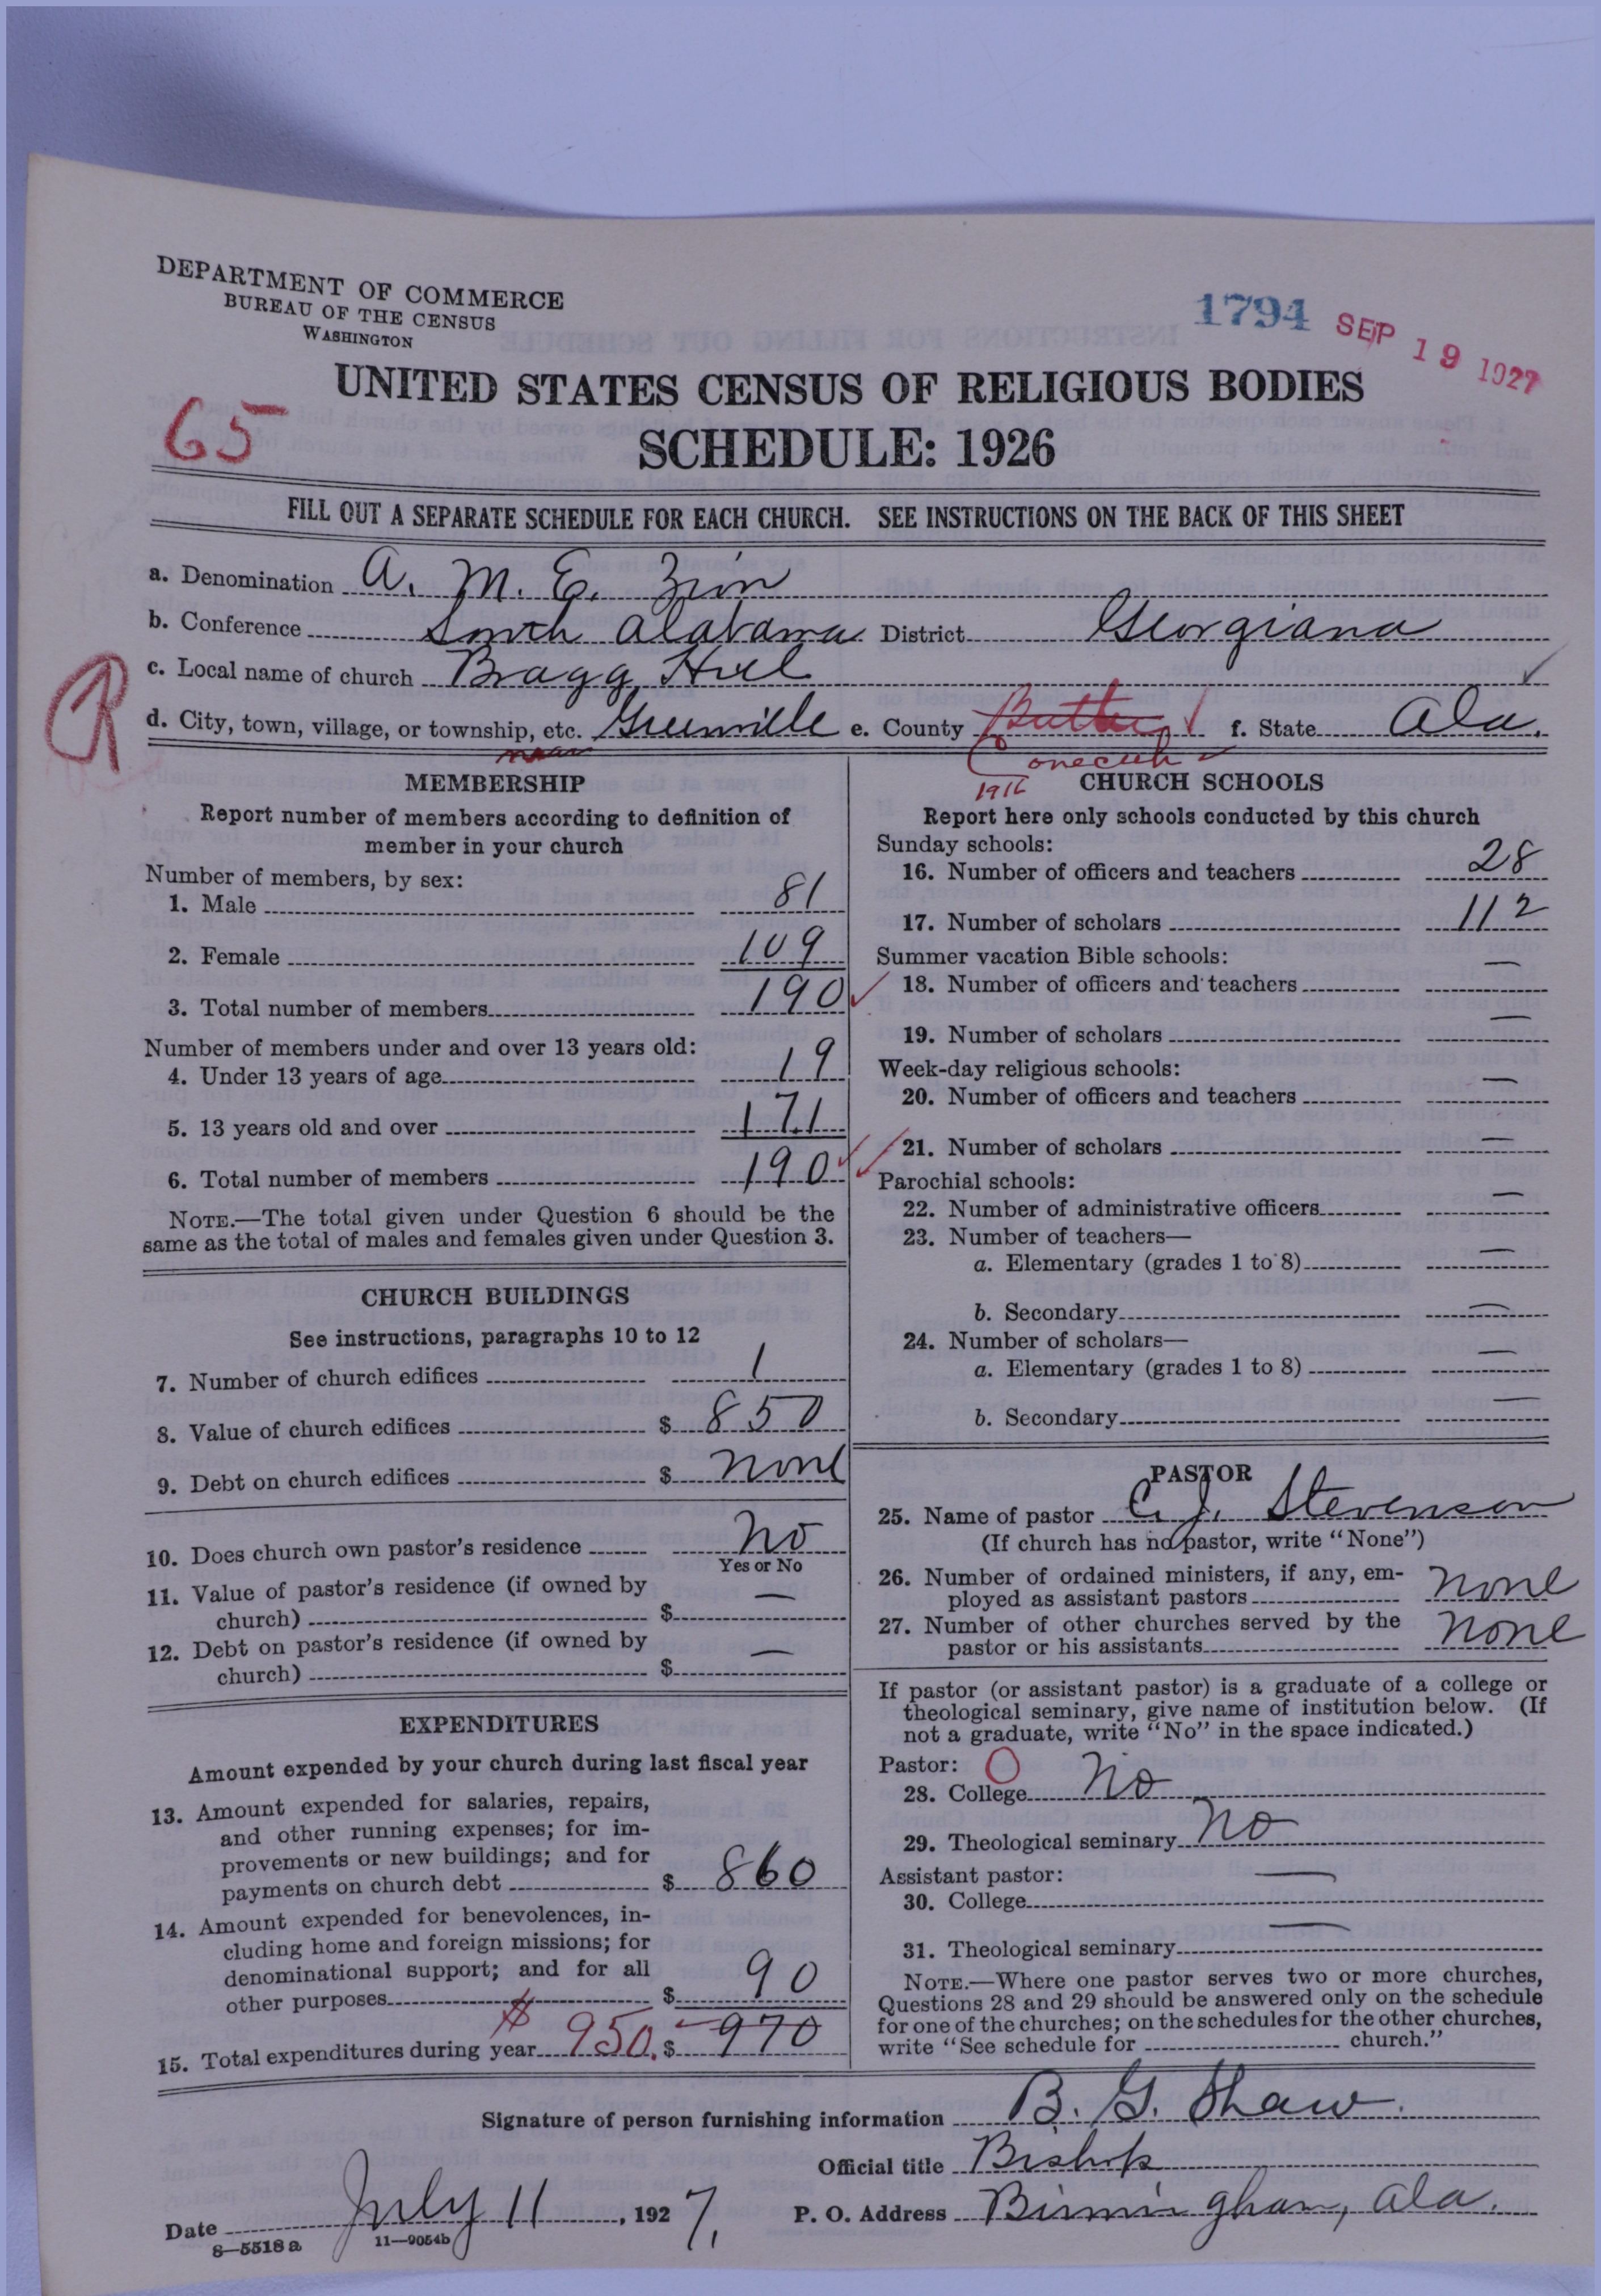 DEPARTMENT OF COMMERCE
BUREAU OF THE CENSUS
WASHINGTON
1794 SEP 19 1927
UNITED STATES CENSUS OF RELIGIOUS BODIES
65
SCHEDULE: 1926
FILL OUT A SEPARATE SCHEDULE FOR EACH CHURCH. SEE INSTRUCTIONS ON THE BACK OF THIS SHEET
a. Denomination A. M. E. Zion
b. Conference South Alabama District Georgiana
c. Local name of church Bragg Hill
R
d. City, town, village, or township, etc. Greenville e. County Butler f. State Ala.
near
Conecuh
1916
MEMBERSHIP
Report number of members according to definition of
member in your church
Number of members, by sex:
1. Male 81
2. Female 109
3. Total number of members 190
Number of members under and over 13 years old:
4. Under 13 years of age 19
5. 13 years old and over 171
6. Total number of members 190
NOTE.—The total given under Question 6 should be the
same as the total of males and females given under Question 3.
CHURCH BUILDINGS
See instructions, paragraphs 10 to 12
7. Number of church edifices 1
8. Value of church edifices $ 850
9. Debt on church edifices $ none
10. Does church own pastor's residence No
Yes or No
11. Value of pastor's residence (if owned by
church) $ —
12. Debt on pastor's residence (if owned by
church) $ —
EXPENDITURES
Amount expended by your church during last fiscal year
13. Amount expended for salaries, repairs,
and other running expenses; for im-
provements or new buildings; and for
payments on church debt $ 860
14. Amount expended for benevolences, in-
cluding home and foreign missions; for
denominational support; and for all
other purposes $ 90
15. Total expenditures during year $ 950. $ 970
CHURCH SCHOOLS
Report here only schools conducted by this church
Sunday schools:
16. Number of officers and teachers 28
17. Number of scholars 112
Summer vacation Bible schools:
18. Number of officers and teachers —
19. Number of scholars —
Week-day religious schools:
20. Number of officers and teachers —
21. Number of scholars —
Parochial schools:
22. Number of administrative officers —
23. Number of teachers—
a. Elementary (grades 1 to 8) —
b. Secondary —
24. Number of scholars—
a. Elementary (grades 1 to 8) —
b. Secondary —
PASTOR
25. Name of pastor C. J. Stevenson
(If church has no pastor, write "None")
26. Number of ordained ministers, if any, em-
ployed as assistant pastors none
27. Number of other churches served by the
pastor or his assistants none
If pastor (or assistant pastor) is a graduate of a college or
theological seminary, give name of institution below. (If
not a graduate, write "No" in the space indicated.)
Pastor: O
28. College No
29. Theological seminary No
Assistant pastor:
30. College —
31. Theological seminary —
NOTE.—Where one pastor serves two or more churches,
Questions 28 and 29 should be answered only on the schedule
for one of the churches; on the schedules for the other churches,
write "See schedule for church."
Signature of person furnishing information B. G. Shaw.
Official title Bishop
Date July 11, 1927. P. O. Address Birmingham, Ala.
8—5518 a 11—9054b